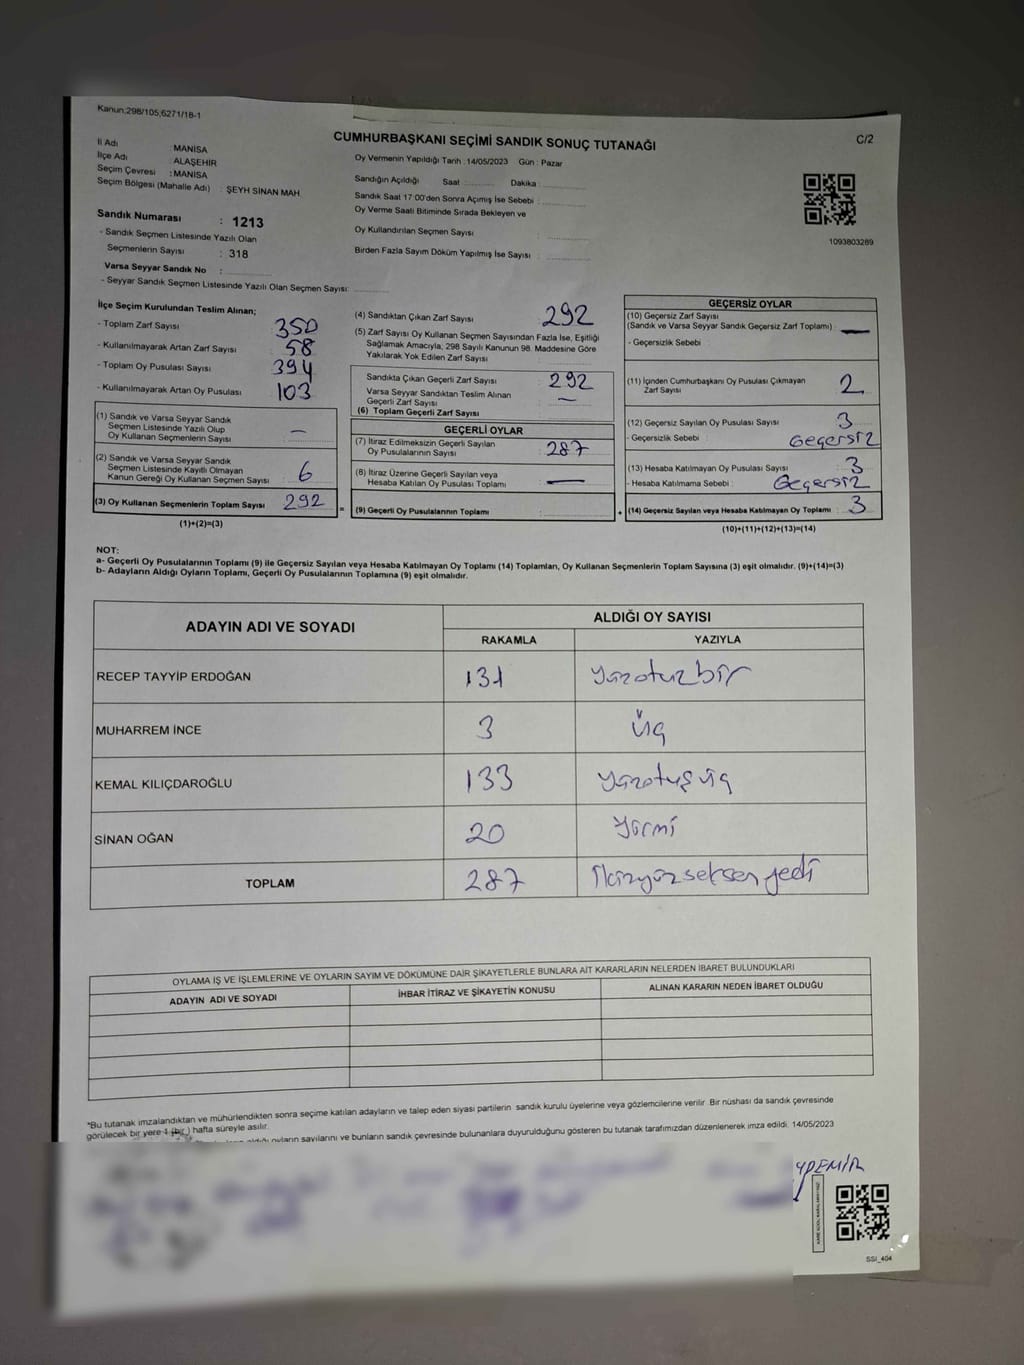 Kanun;298/105;6271/18-1
CUMHURBAŞKANI SEÇİMİ SANDIK SONUÇ TUTANAĞI
C/2
İl Adı : MANİSA
İlçe Adı : ALAŞEHİR
Seçim Çevresi : MANİSA
Seçim Bölgesi (Mahalle Adı) : ŞEYH SİNAN MAH.
Sandık Numarası : 1213
- Sandık Seçmen Listesinde Yazılı Olan
Seçmenlerin Sayısı : 318
Varsa Seyyar Sandık No :
- Seyyar Sandık Seçmen Listesinde Yazılı Olan Seçmen Sayısı:
Oy Vermenin Yapıldığı Tarih : 14/05/2023 Gün : Pazar
Sandığın Açıldığı Saat Dakika
Sandık Saat 17:00'den Sonra Açımış İse Sebebi :
Oy Verme Saati Bitiminde Sırada Bekleyen ve
Oy Kullandırılan Seçmen Sayısı :
Birden Fazla Sayım Döküm Yapılmış İse Sayısı :
1093803289
İlçe Seçim Kurulundan Teslim Alınan;
- Toplam Zarf Sayısı 350
- Kullanılmayarak Artan Zarf Sayısı 58
- Toplam Oy Pusulası Sayısı 394
- Kullanılmayarak Artan Oy Pusulası 103
(1) Sandık ve Varsa Seyyar Sandık
Seçmen Listesinde Yazılı Olup
Oy Kullanan Seçmenlerin Sayısı —
(2) Sandık ve Varsa Seyyar Sandık
Seçmen Listesinde Kayıtlı Olmayan
Kanun Gereği Oy Kullanan Seçmen Sayısı 6
(3) Oy Kullanan Seçmenlerin Toplam Sayısı 292
(1)+(2)=(3)
=
(4) Sandıktan Çıkan Zarf Sayısı 292
(5) Zarf Sayısı Oy Kullanan Seçmen Sayısından Fazla İse, Eşitliği
Sağlamak Amacıyla, 298 Sayılı Kanunun 98. Maddesine Göre
Yakılarak Yok Edilen Zarf Sayısı
Sandıkta Çıkan Geçerli Zarf Sayısı 292
Varsa Seyyar Sandıktan Teslim Alınan
Geçerli Zarf Sayısı —
(6) Toplam Geçerli Zarf Sayısı
GEÇERLİ OYLAR
(7) İtiraz Edilmeksizin Geçerli Sayılan
Oy Pusulalarının Sayısı 287
(8) İtiraz Üzerine Geçerli Sayılan veya
Hesaba Katılan Oy Pusulası Toplamı —
(9) Geçerli Oy Pusulalarının Toplamı
+
GEÇERSİZ OYLAR
(10) Geçersiz Zarf Sayısı
(Sandık ve Varsa Seyyar Sandık Geçersiz Zarf Toplamı) —
- Geçersizlik Sebebi
(11) İçinden Cumhurbaşkanı Oy Pusulası Çıkmayan
Zarf Sayısı 2
(12) Geçersiz Sayılan Oy Pusulası Sayısı 3
- Geçersizlik Sebebi Geçersiz
(13) Hesaba Katılmayan Oy Pusulası Sayısı 3
- Hesaba Katılmama Sebebi Geçersiz
(14) Geçersiz Sayılan veya Hesaba Katılmayan Oy Toplamı 3
(10)+(11)+(12)+(13)=(14)
NOT:
a- Geçerli Oy Pusulalarının Toplamı (9) ile Geçersiz Sayılan veya Hesaba Katılmayan Oy Toplamı (14) Toplamları, Oy Kullanan Seçmenlerin Toplam Sayısına (3) eşit olmalıdır. (9)+(14)=(3)
b- Adayların Aldığı Oyların Toplamı, Geçerli Oy Pusulalarının Toplamına (9) eşit olmalıdır.
ADAYIN ADI VE SOYADI
ALDIĞI OY SAYISI
RAKAMLA YAZIYLA
RECEP TAYYİP ERDOĞAN 131 yüzotuzbir
MUHARREM İNCE 3 üç
KEMAL KILIÇDAROĞLU 133 yüzotuzüç
SİNAN OĞAN 20 yirmi
TOPLAM 287 ikiyüzseksenyedi
OYLAMA İŞ VE İŞLEMLERİNE VE OYLARIN SAYIM VE DÖKÜMÜNE DAİR ŞİKAYETLERLE BUNLARA AİT KARARLARIN NELERDEN İBARET BULUNDUKLARI
ADAYIN ADI VE SOYADI İHBAR İTİRAZ VE ŞİKAYETİN KONUSU ALINAN KARARIN NEDEN İBARET OLDUĞU
*Bu tutanak imzalandıktan ve mühürlendikten sonra seçime katılan adayların ve talep eden siyasi partilerin sandık kurulu üyelerine veya gözlemcilerine verilir. Bir nüshası da sandık çevresinde
görülecek bir yere 1 (bir ) hafta süreyle asılır.
oyların sayılarını ve bunların sandık çevresinde bulunanlara duyurulduğunu gösteren bu tutanak tarafımızdan düzenlenerek imza edildi. 14/05/2023
SSI_404